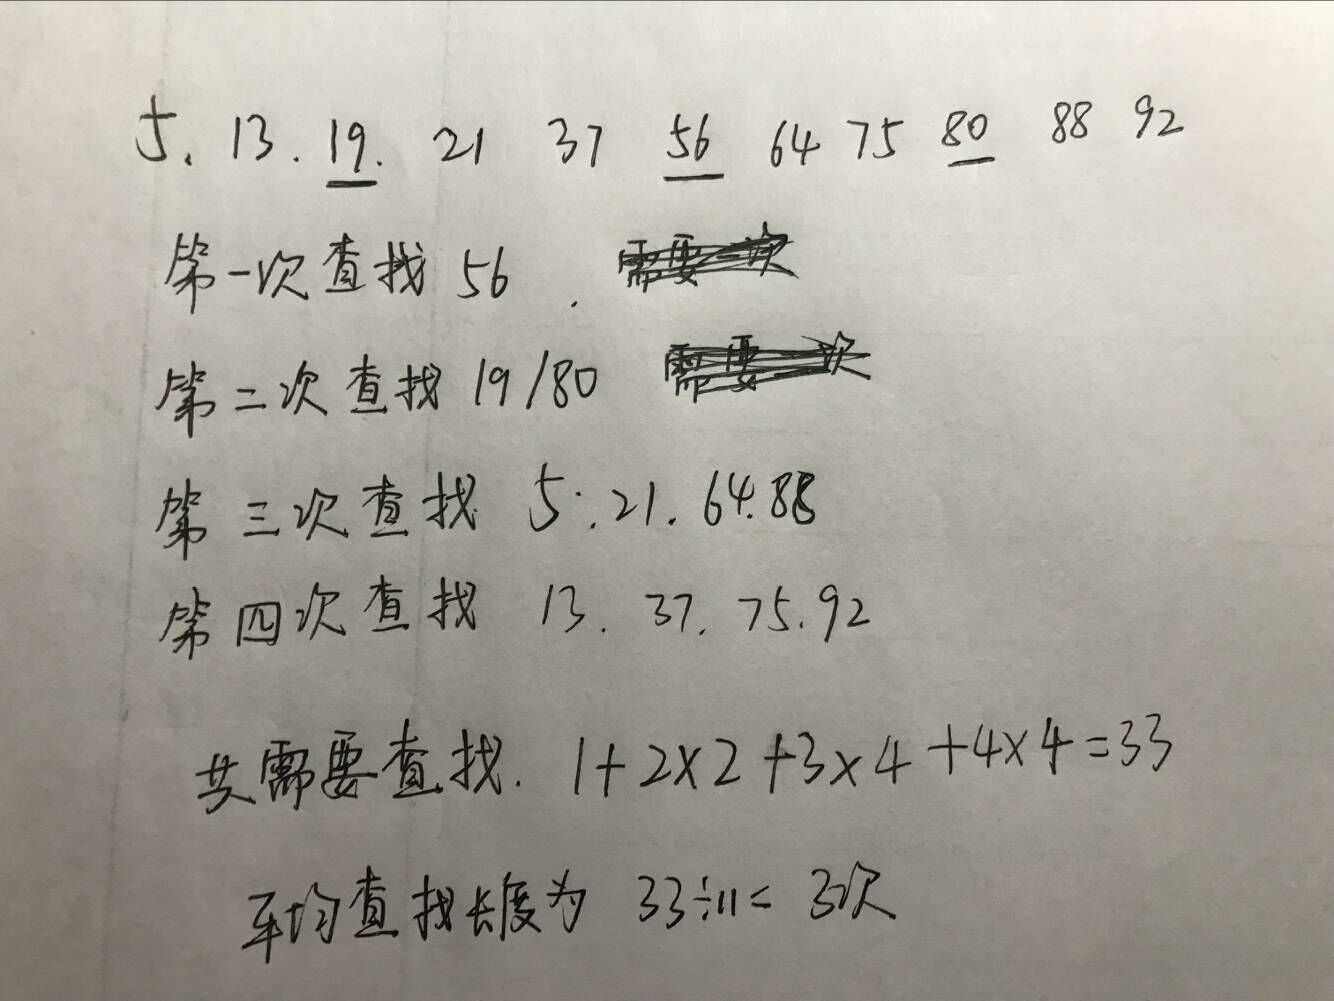 5. 13. 19. 21 37 56 64 75 80 88 92
第一次查找 56 . 需要一次
第二次查找 19/80 需要 次
第三次查找 5. 21. 64. 88
第四次查找 13. 37. 75. 92
共需要查找. 1+2×2+3×4+4×4=33
平均查找长度为 33÷11= 3次